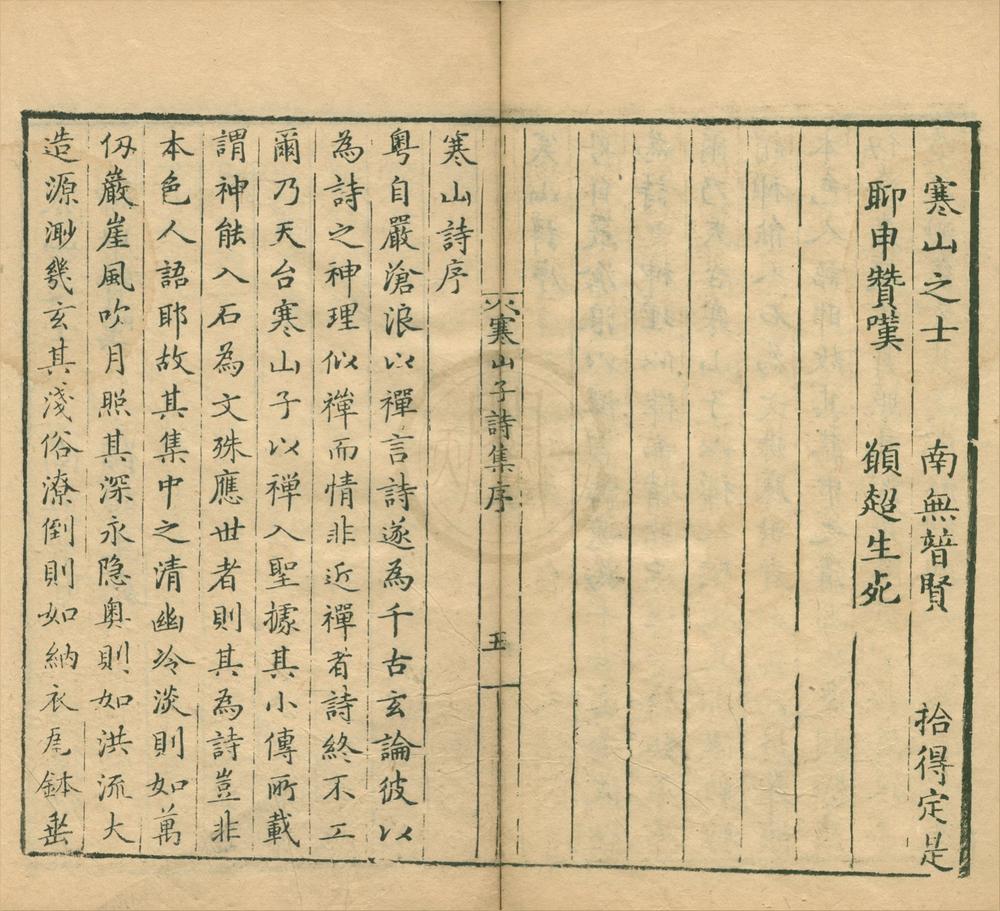 寒山之士　南無普賢　拾得定是
聊申贊嘆　願超生死
寒山子詩集序　五
寒山詩序
粵自嚴滄浪以禪言詩遂為千古玄論彼以
為詩之神理似禪而情非近禪者詩終不工
爾乃天台寒山子以禪入聖據其小傳所載
謂神能入石為文殊應世者則其為詩豈非
本色人語耶故其集中之清幽冷淡則如萬
仭巖崖風吹月照其深永隐奧則如洪流大
造源渺幾玄其淺俗潦倒則如納衣𤬪鉢垂